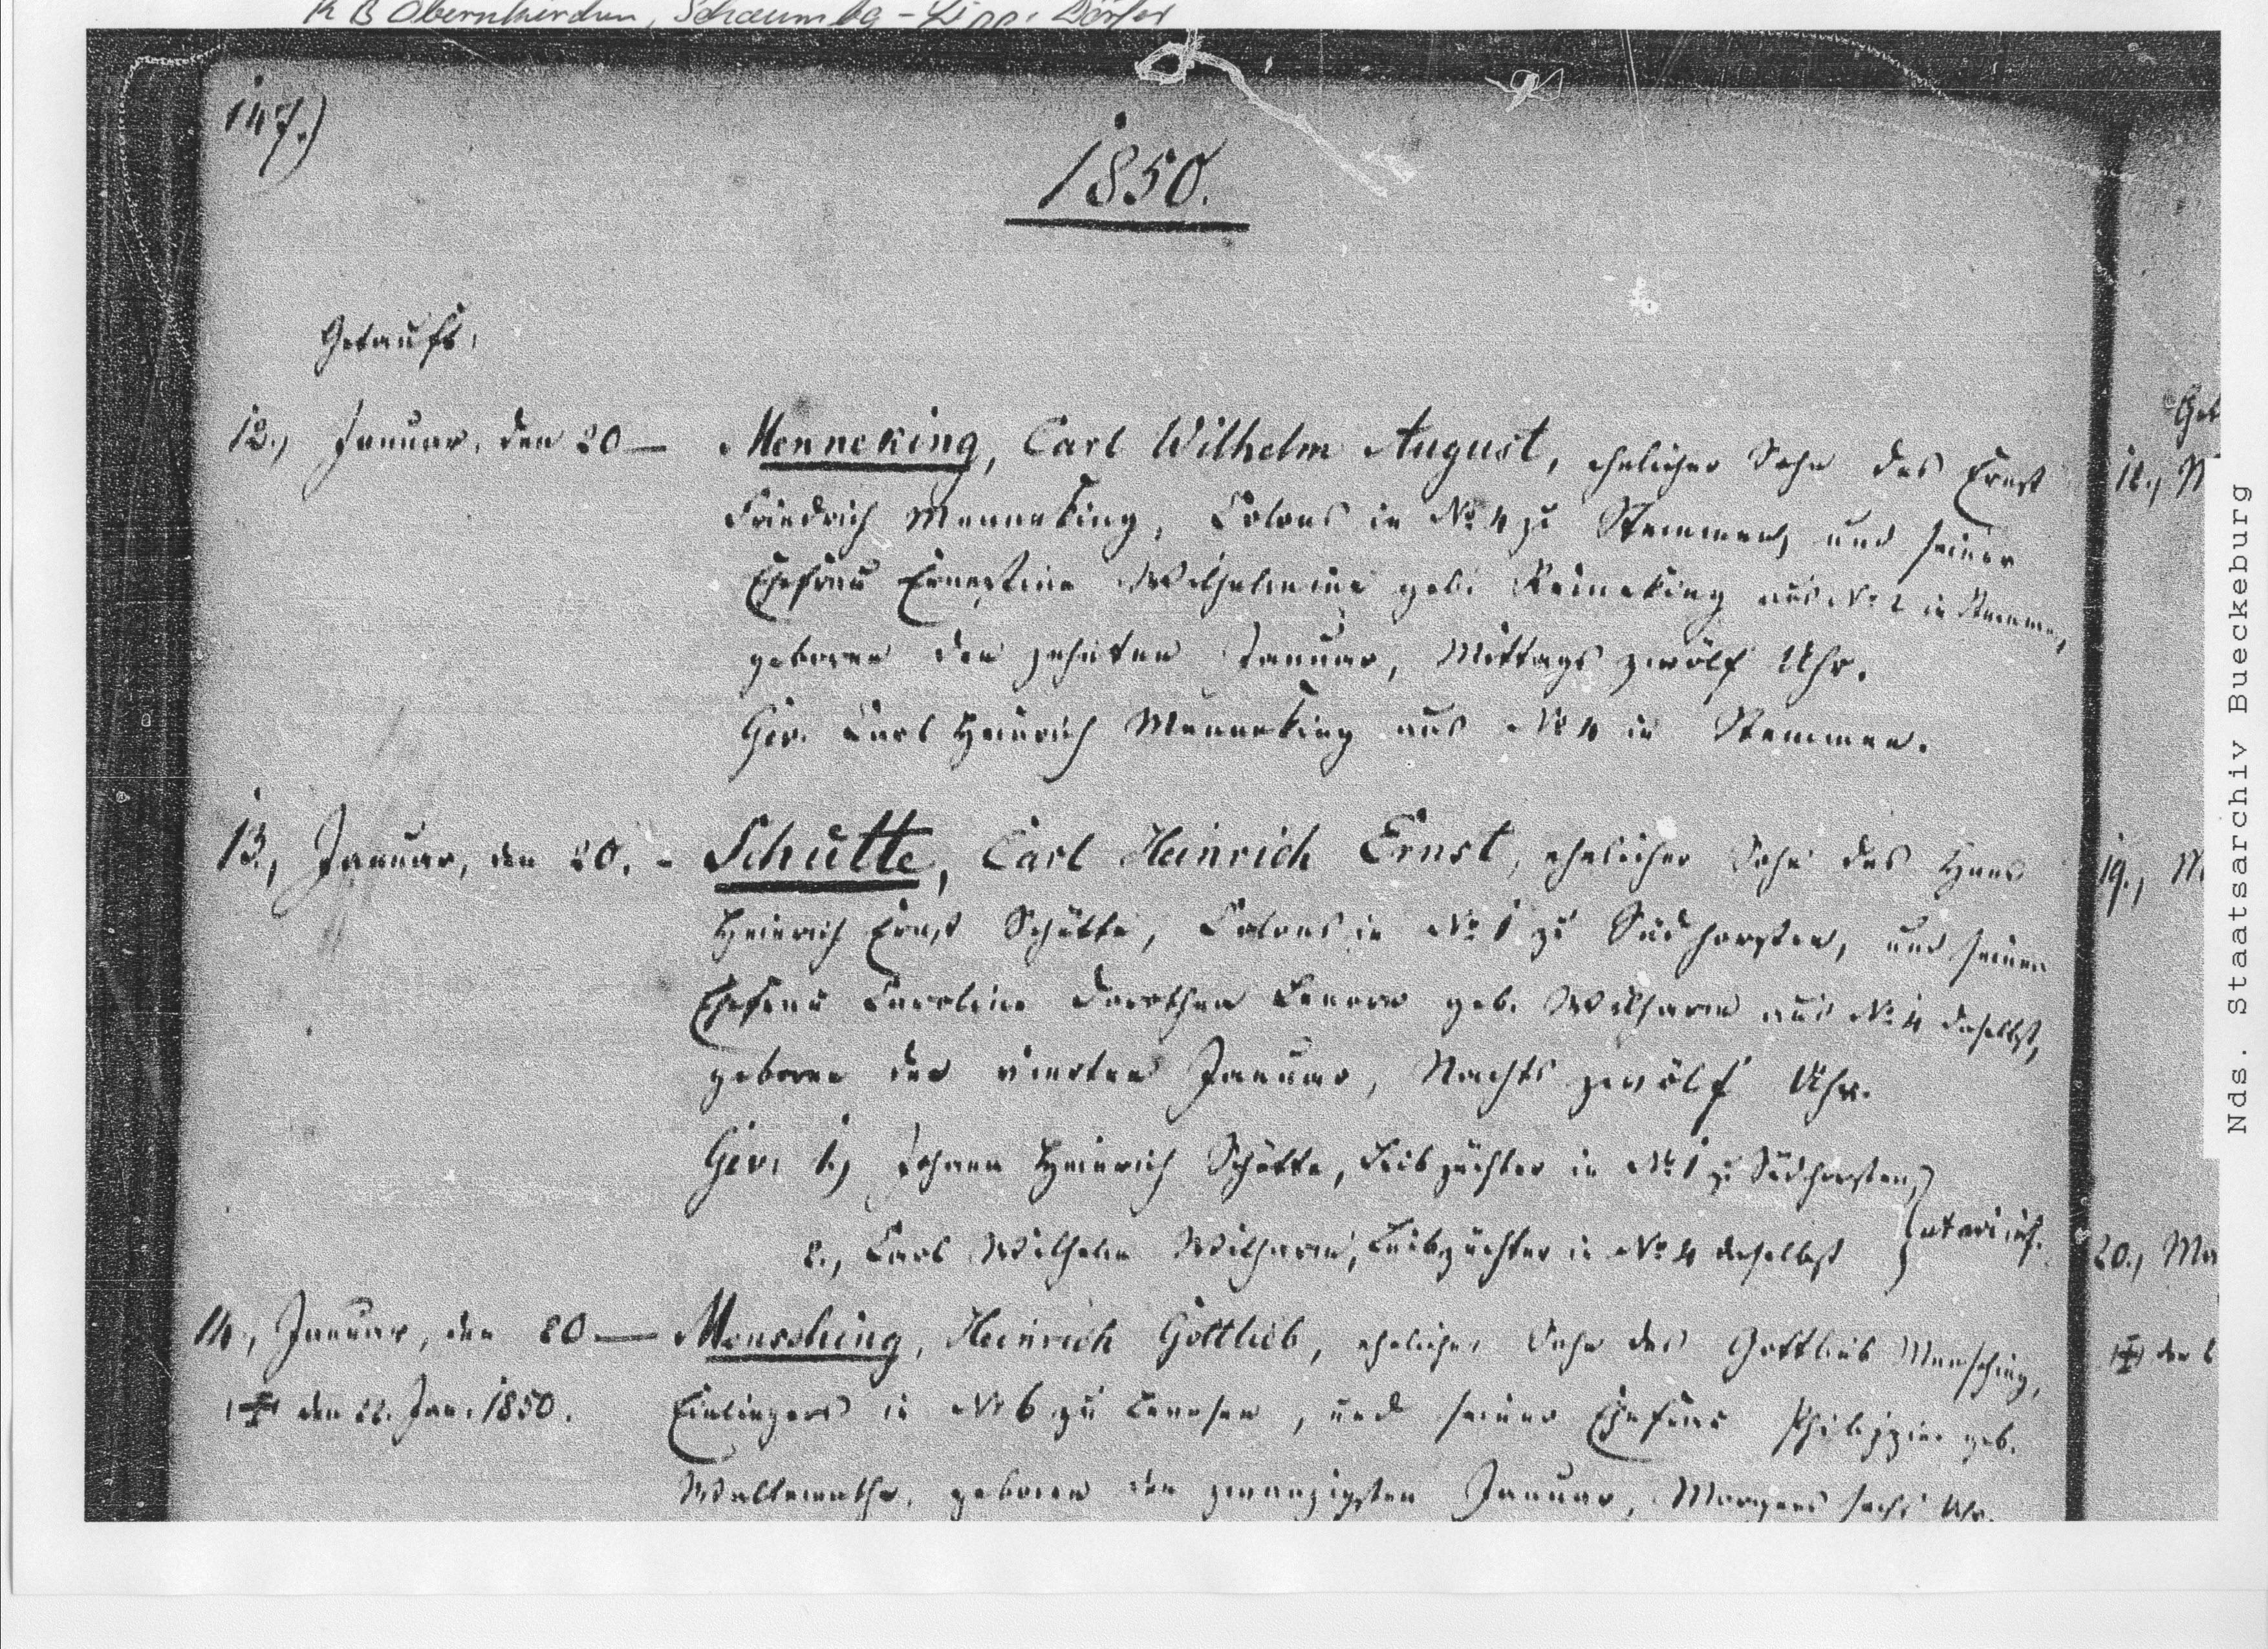 K B Obernkirchen, Schaumbg - Lipp. Dörfer
147.)
1850.
Getauft,
12., Januar, den 20 — Menneking, Carl Wilhelm August, ehelicher Sohn des Ernst
Friedrich Menneking, Colons in No 4 zu Stemmen, und seiner
Ehefrau Ernestine Wilhelmine geb. Reineking aus No 2 in Stemmen,
geboren den zehnten Januar, Mittags zwölf Uhr.
Gev. Carl Heinrich Menneking aus No 4 in Stemmen.
13., Januar, den 20. - Schütte, Carl Heinrich Ernst, ehelicher Sohn des Hans
Heinrich Ernst Schütte, Colons in No 1 zu Südhorsten, und seiner
Ehefrau Caroline Dorothea Lenore geb. Wilharm aus No 4 daselbst,
geboren den vierten Januar, Nachts zwölf Uhr.
Gev. 1., Johann Heinrich Schütte, Leibzüchter in No 1 zu Südhorsten,
2., Carl Wilhelm Wilharm, Leibzüchter in No 4 daselbst
14., Januar, den 20 — Mensching, Heinrich Gottlieb, ehelicher Sohn des Gottlieb Mensching,
den 22. Jan. 1850. Einliegers in No 6 zu, und seiner Ehefrau Philippine geb.
geboren den zwanzigsten Januar, Morgens sechs Uhr.
Get
18., M
19., M
20., Ma
den 6
Nds. Staatsarchiv Bueckeburg